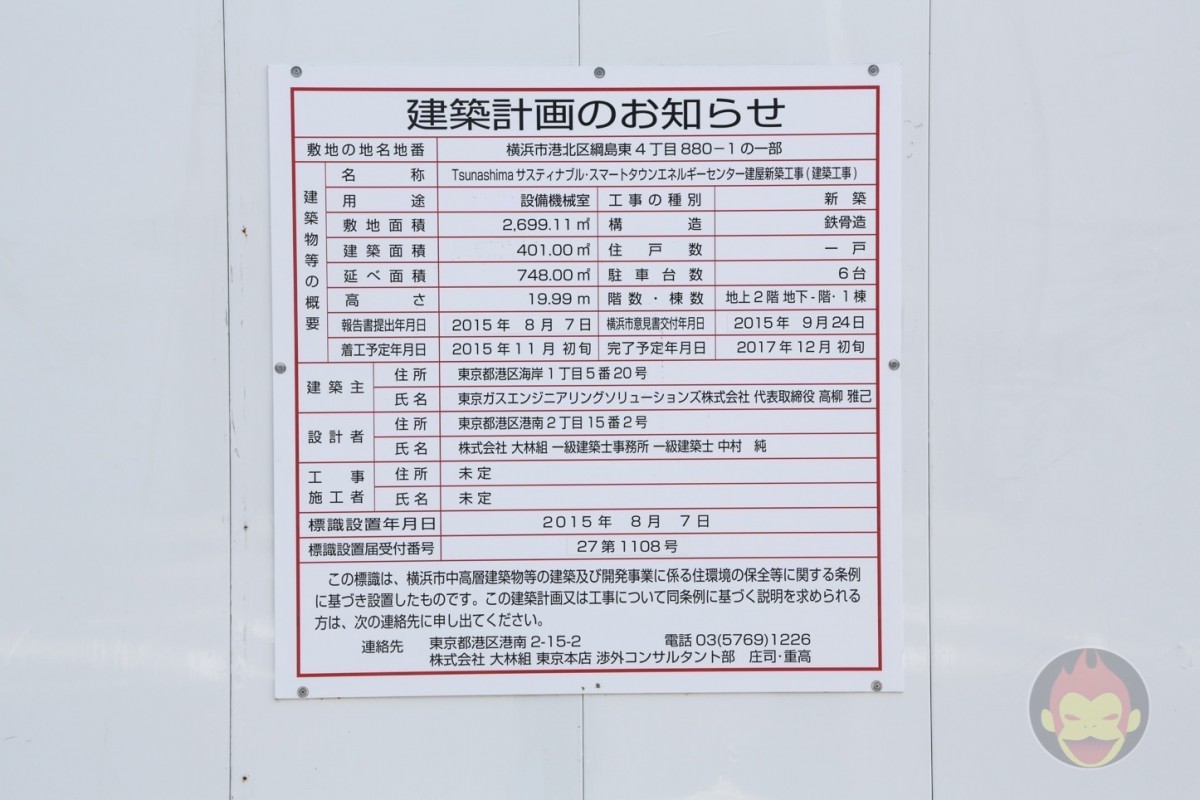 建築計画のお知らせ
敷地の地名地番 横浜市港北区綱島東4丁目880－1の一部
建築物等の概要
名称 Tsunashimaサスティナブル・スマートタウンエネルギーセンター建屋新築工事(建築工事)
用途 設備機械室 工事の種別 新築
敷地面積 2,699.11㎡ 構造 鉄骨造
建築面積 401.00㎡ 住戸数 一戸
延べ面積 748.00㎡ 駐車台数 6台
高さ 19.99m 階数・棟数 地上2階 地下-階・1棟
報告書提出年月日 2015年 8月 7日 横浜市意見書交付年月日 2015年 9月24日
着工予定年月日 2015年11月 初旬 完了予定年月日 2017年12月 初旬
建築主 住所 東京都港区海岸1丁目5番20号
氏名 東京ガスエンジニアリングソリューションズ株式会社 代表取締役 高柳 雅己
設計者 住所 東京都港区港南2丁目15番2号
氏名 株式会社 大林組 一級建築士事務所 一級建築士 中村 純
工事施工者 住所 未定
氏名 未定
標識設置年月日 2015年 8月 7日
標識設置届受付番号 27第1108号
この標識は、横浜市中高層建築物等の建築及び開発事業に係る住環境の保全等に関する条例
に基づき設置したものです。この建築計画又は工事について同条例に基づく説明を求められる
方は、次の連絡先に申し出てください。
連絡先 東京都港区港南2-15-2 電話03(5769)1226
株式会社 大林組 東京本店 渉外コンサルタント部 庄司・重高